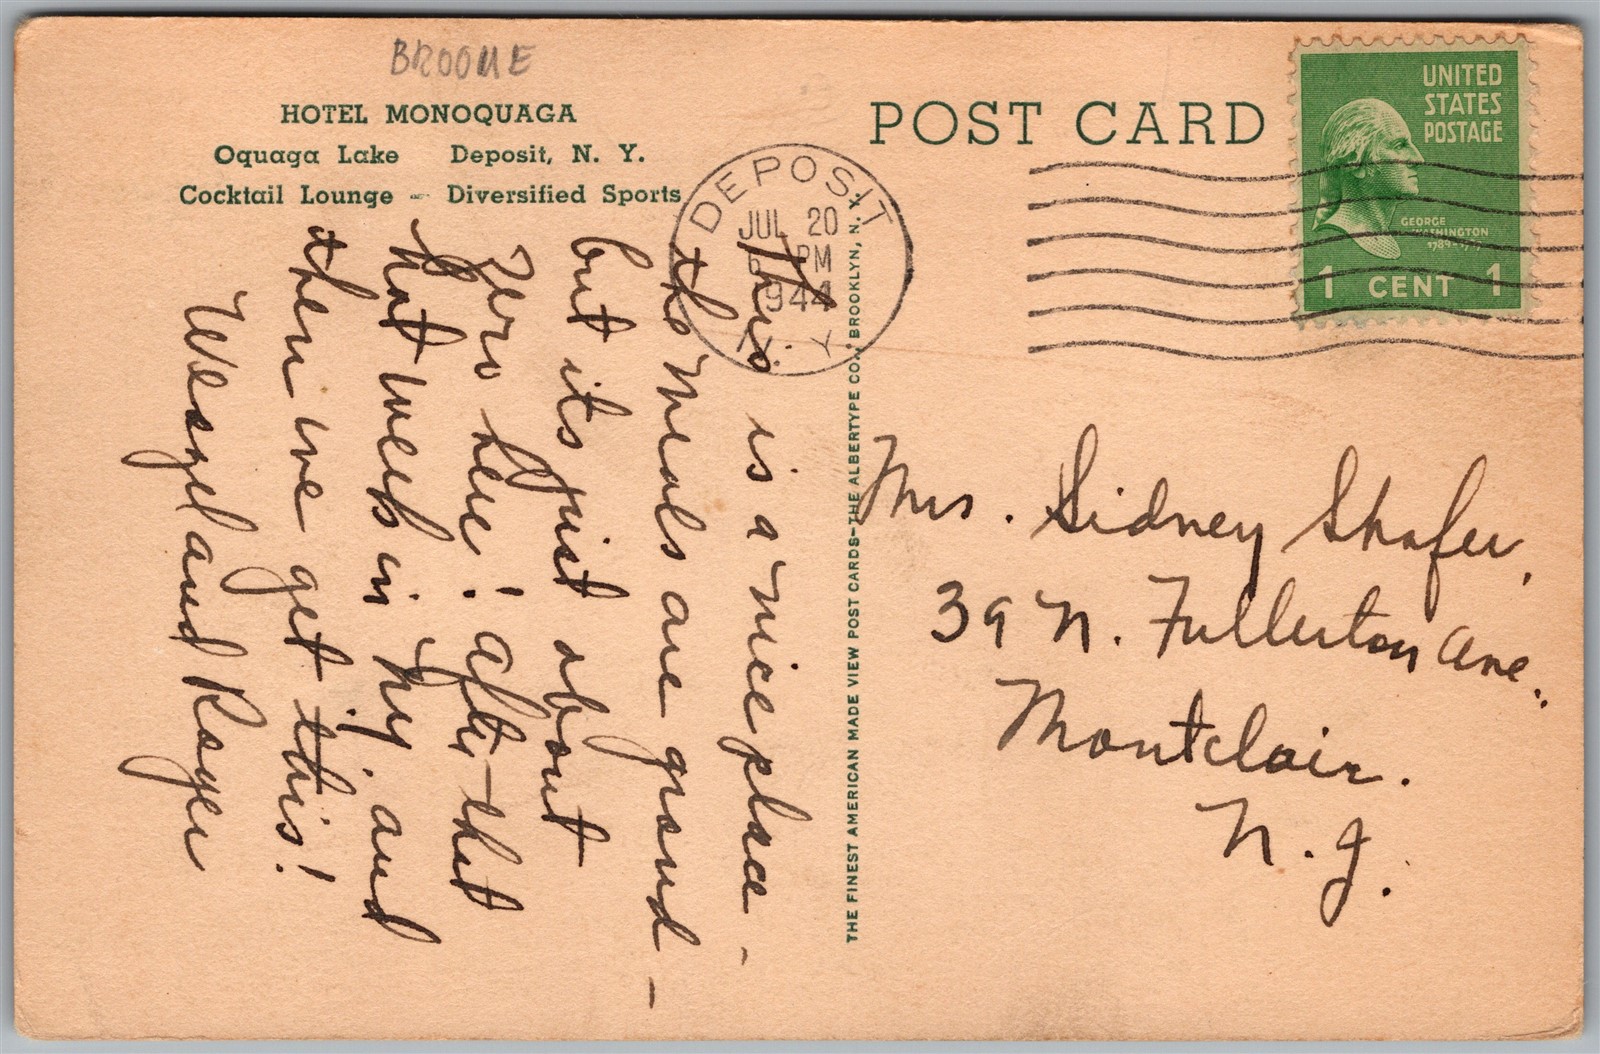 BROOME
HOTEL MONOQUAGA
Oquaga Lake Deposit, N. Y.
Cocktail Lounge - Diversified Sports
This is a nice place -
the meals are grand -
but its just about
zero here! after that
hot week in N.Y. and
then we get this!
and Roger
THE FINEST AMERICAN MADE VIEW POST CARDS-THE ALBERTYPE CO., BROOKLYN, N. Y.
POST CARD
DEPOSIT
JUL 20
PM
1944
N. Y.
UNITED
STATES
POSTAGE
GEORGE
WASHINGTON
1789-1797
1 CENT 1
Mrs. Sidney Shafer,
39 N. Fullerton Ave.
Montclair.
N. J.